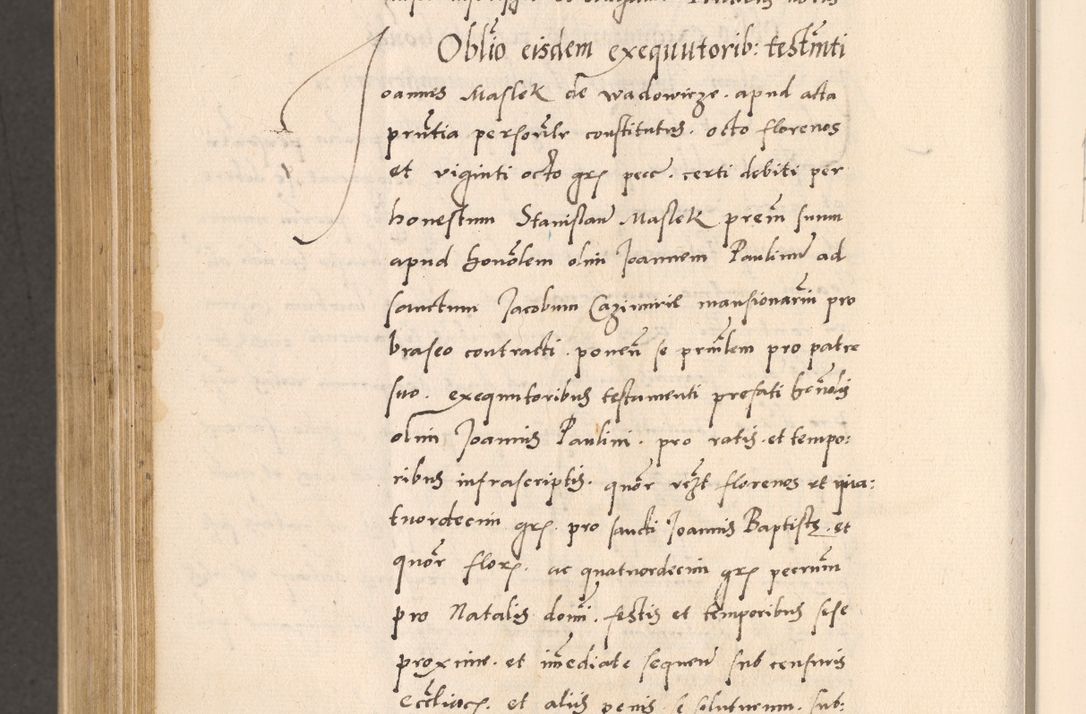 Oblio eisdem exequutorib: testmti
Ioannes Maslek de Wadowicze. apud acta
pntia personlr constitutus. octo florenos
et viginti octo grs pecc. certi debiti per
honestum Stanislau Maslek prem suum
apud honolem olim Joannem Paulinu ad
sanctum Jacobum Cazimirie mansionariu pro
braseo contracti. ponen se prinlem pro patre
suo. exequutoribus testumenti prefati honolis
olim Joannis Paulini. pro ratis. et tempo:
ribus infrascriptis. quor florenos et qua:
tuordecim grs. pro sancti Joannis Baptiste. et
quor flors. ac quatuordecim grs pecrum
pro Natalis domi. festis et temporibus sese
proxime. et imediate sequen sub censuris
Eccliasticis. et aliis penis. soluturum. sub: